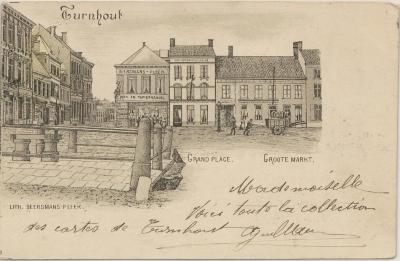 Turnhout
BEERSMANS-PLEEK
GRAND PLACE.
GROOTE MARKT.
LITH. BEERSMANS-PLEEK.
Mademoiselle
Voici toute la collection
des cartes de Turnhout